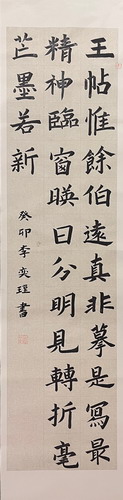 王帖惟餘伯遠真非摹是寫最
精神臨窗暎日分明見轉折毫
芒墨若新
癸卯李奕瑆書